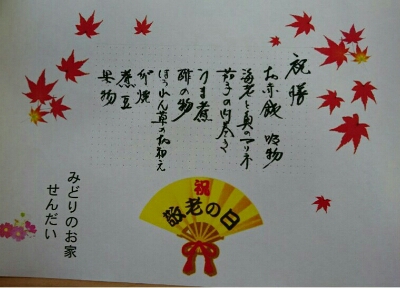 祝膳
お赤飯 吸物
海老と貝のマリネ
茄子の肉巻き
うま煮
酢の物
ほうれん草の和え
卵焼
煮豆
果物
祝
敬老の日
みどりのお家
せんだい